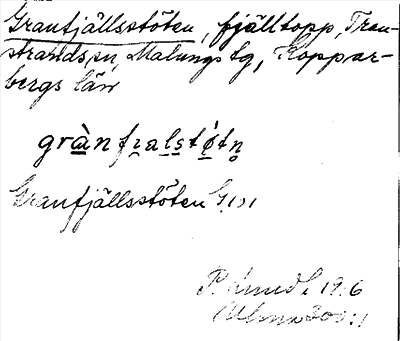 Granfjällsstöten, fjälltopp, Tran-
strands sn, Malungs tg, Koppar-
bergs län
granfjalstötn
Granfjällsstöten
P. Lundl 19